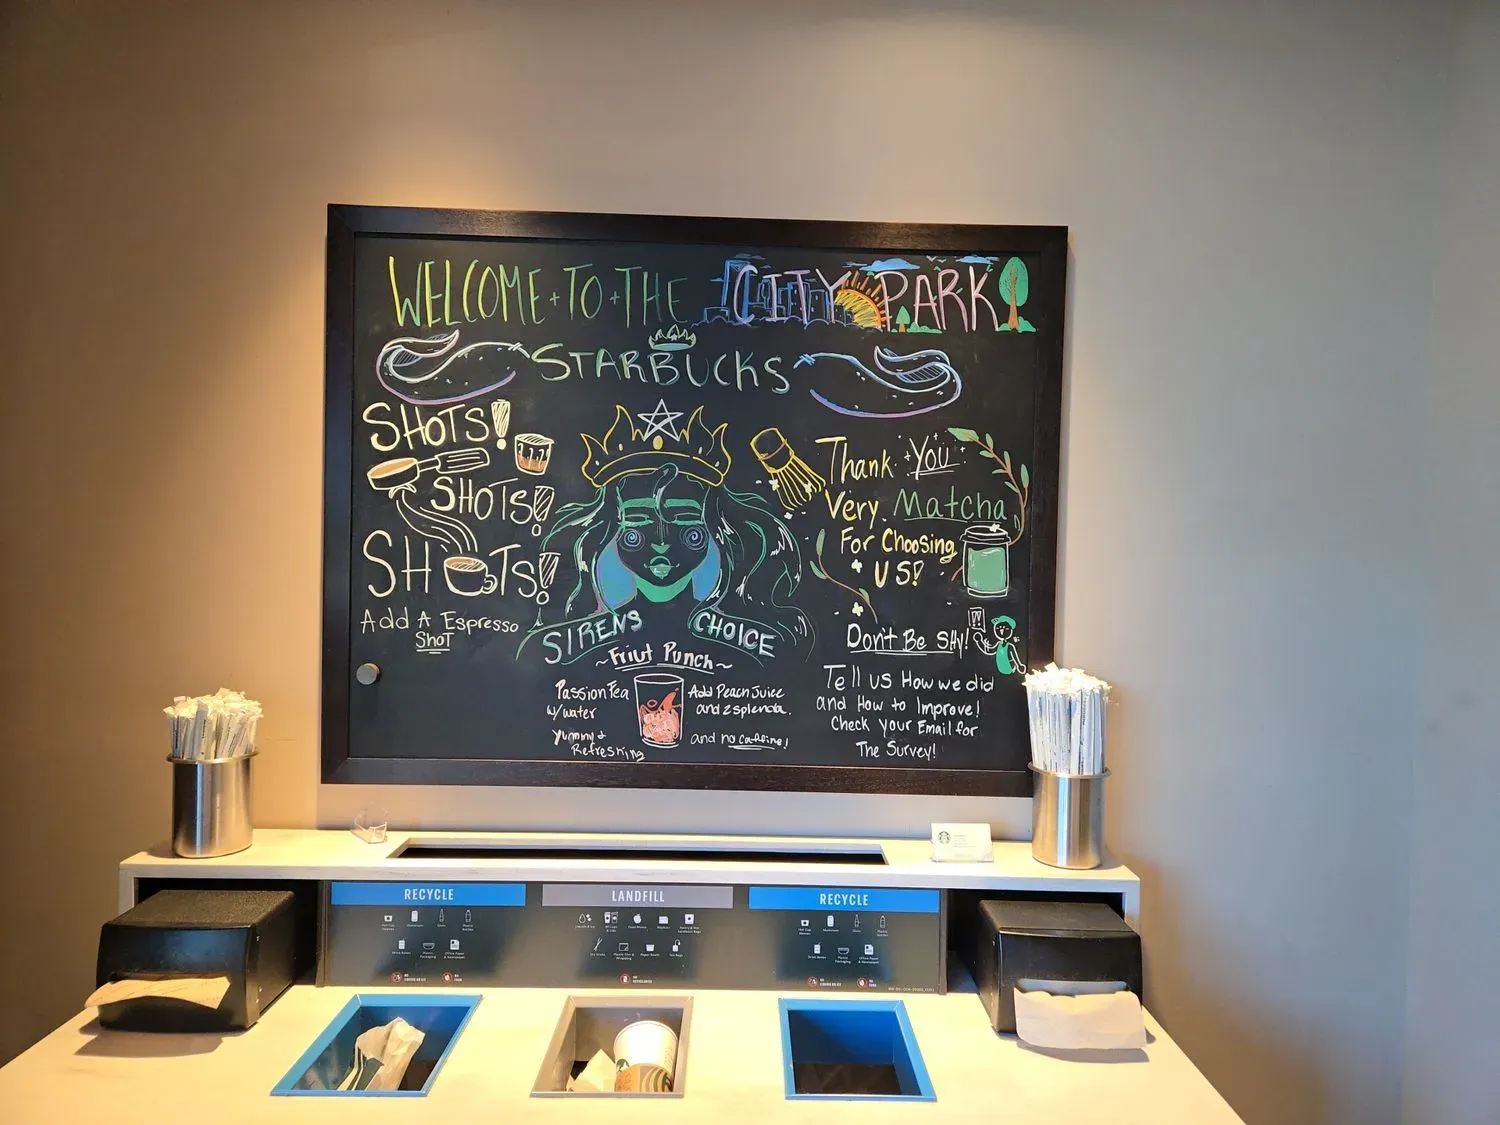 WELCOME TO THE CITY PARK
STARBUCKS
SHOTS!
SHOTS!
SHOTS!
Add A Espresso
Shot
SIRENS CHOICE
~Friut Punch~
Passion Tea
w/water
Yummy +
Refreshing
Add Peach Juice
and 2 splenda.
and no caffine!
Thank You
Very Matcha
For Choosing
US!
Don't Be Shy!
Tell us How we did
and How to Improve!
Check your Email for
The Survey!
RECYCLE
LANDFILL
RECYCLE